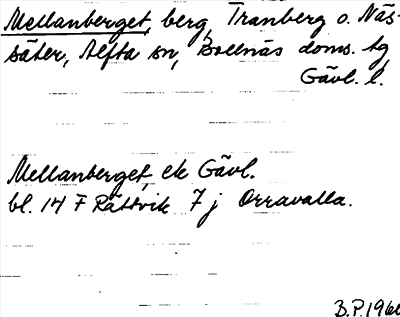 Mellanberget, berg, Tranberg o. Näs-
säter, Alfta sn, Bollnäs doms. tg
Gävl. l.
Mellanberget ek Gävl.
bl. 14 F Rättvik 7 j Orravalla.
B.P. 1960